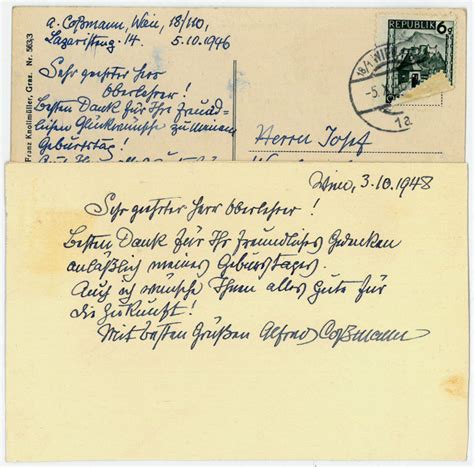 Franz Knollmüller, Graz. Nr. 563,3
A. Coßmann, Wien, 18/110,
Lazaristeng. 14. 5.10.1946
Sehr geehrter Herr
Oberlehrer!
Besten Dank für Ihre freund-
lichen Glückwünsche zu meinem
Geburtstag!
REPUBLIK 6g
WIEN
-5.X.
1a
Herrn Josef
Wien, 3.10.1948
Sehr geehrter Herr Oberlehrer!
Besten Dank für Ihr freundliches Gedenken
anläßlich meines Geburtstages.
Auch ich wünsche Ihnen alles Gute für
die Zukunft!
Mit besten Grüßen Alfred Coßmann